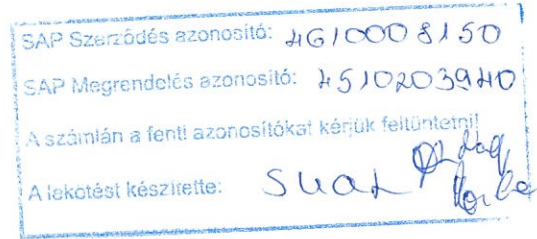 SAP Szerződés azonosító: 4610008150
SAP Megrendelés azonosító: 4510203940
A számlán a fenti azonosítókat kérjük feltüntetni!
A lekötést készítette: